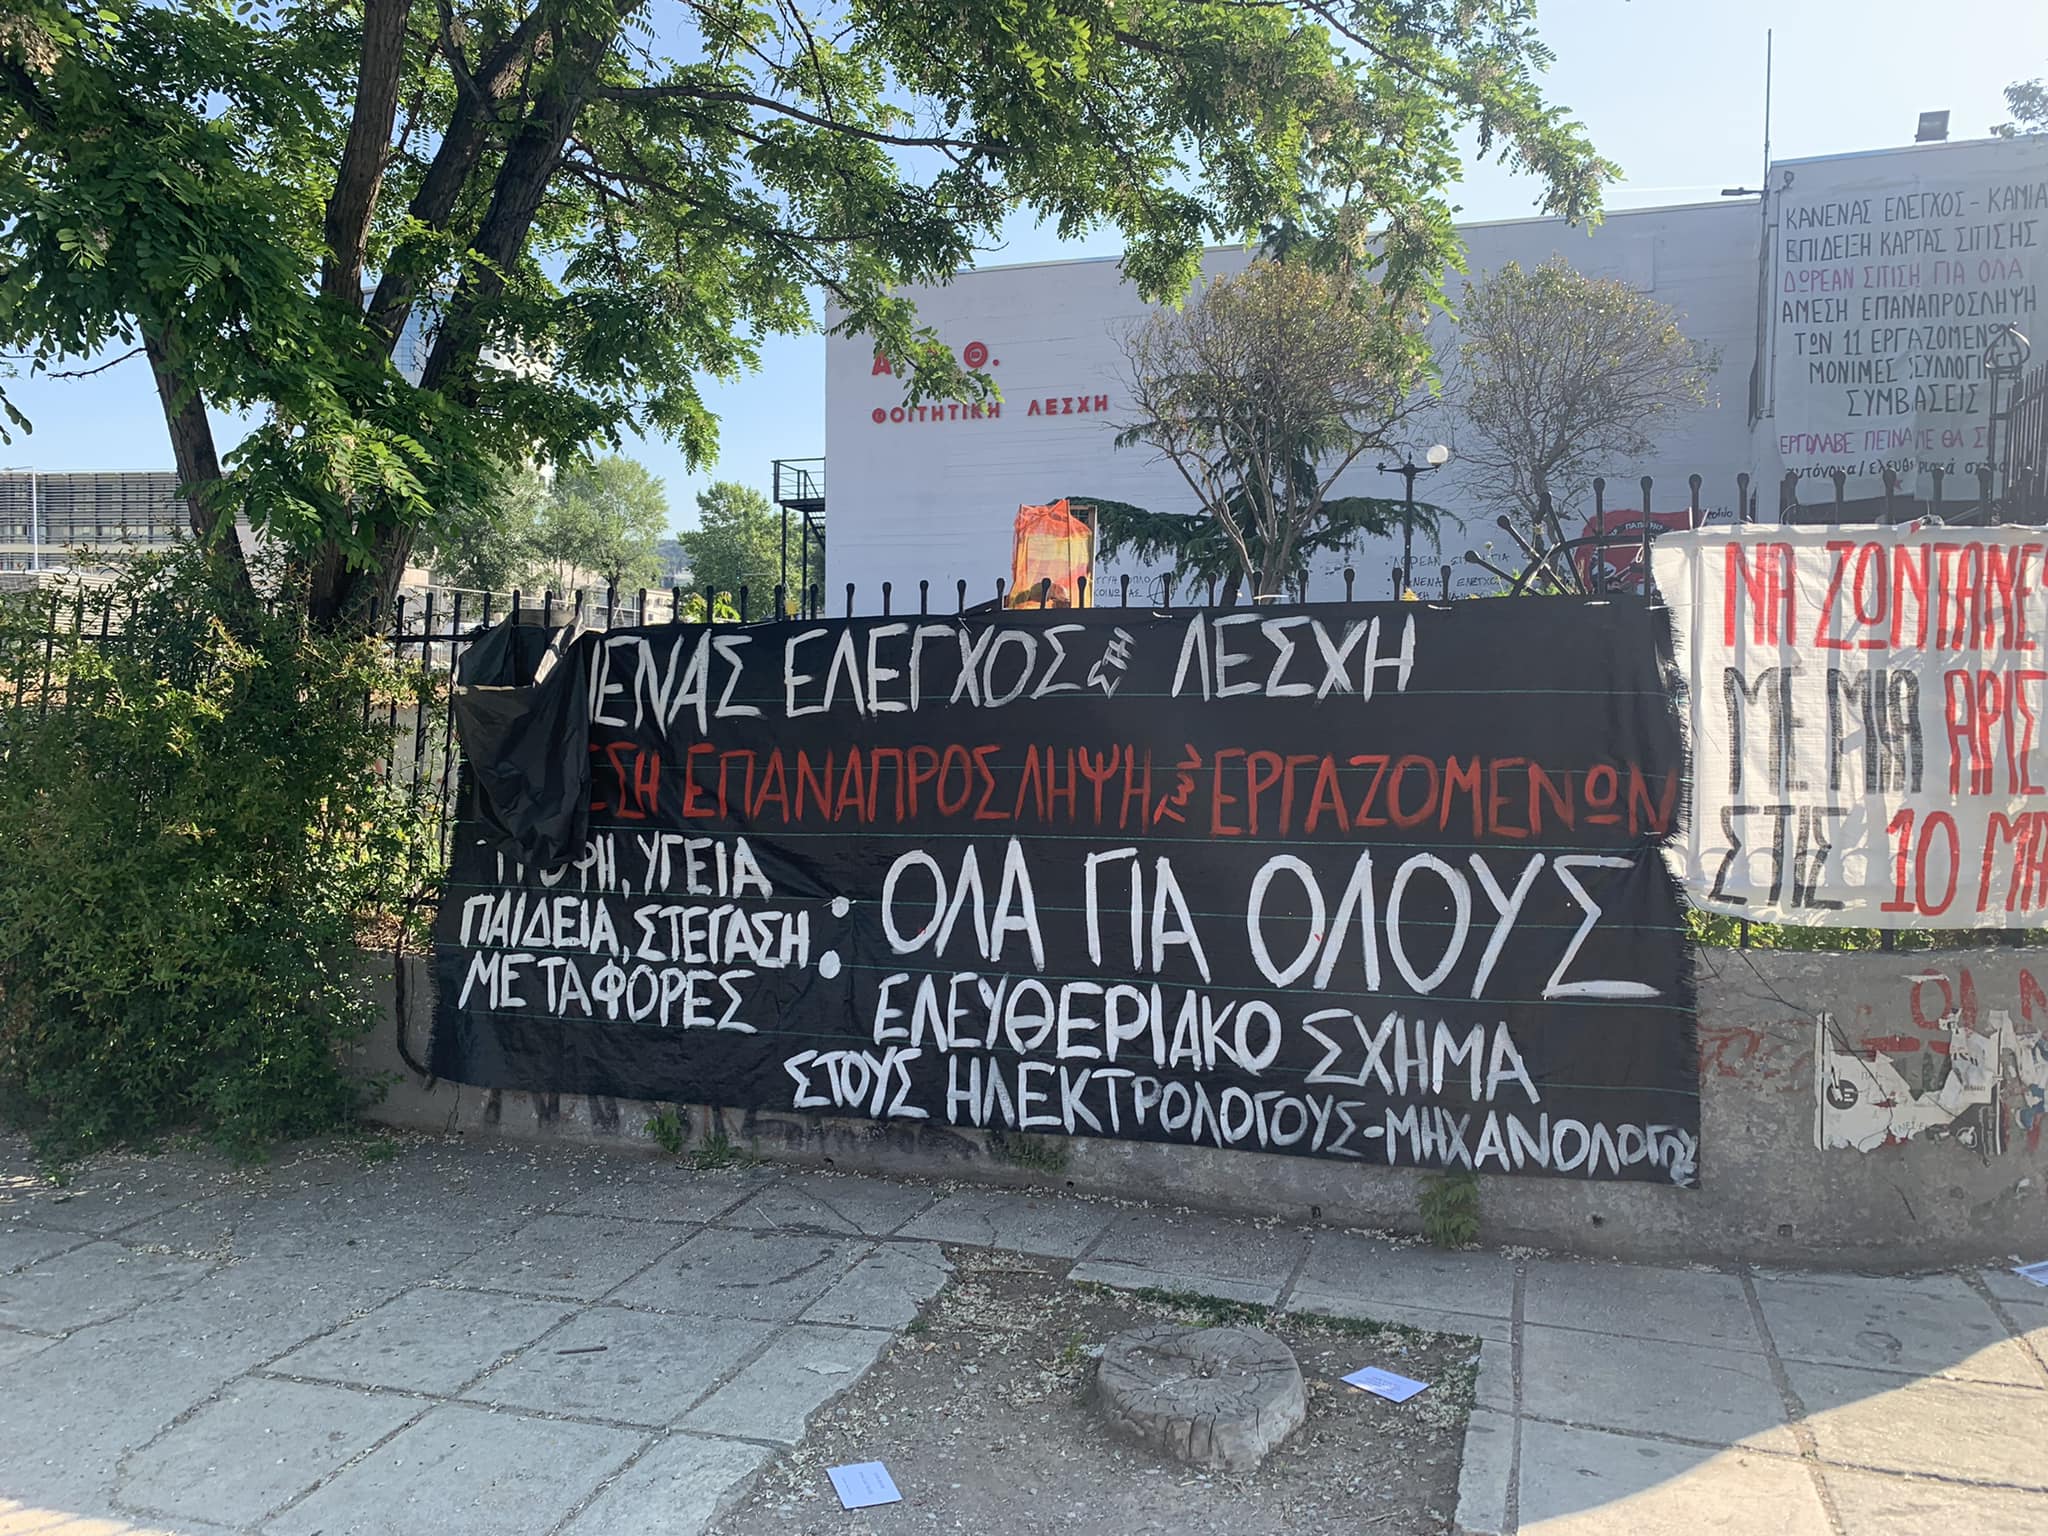 Α.Π.Θ.
ΦΟΙΤΗΤΙΚΗ ΛΕΣΧΗ
ΚΑΝΕΝΑΣ ΕΛΕΓΧΟΣ - ΚΑΜΙΑ
ΕΠΙΔΕΙΞΗ ΚΑΡΤΑΣ ΣΙΤΙΣΗΣ
ΔΩΡΕΑΝ ΣΙΤΙΣΗ ΓΙΑ ΟΛΑ
ΑΜΕΣΗ ΕΠΑΝΑΠΡΟΣΛΗΨΗ
ΤΩΝ 11 ΕΡΓΑΖΟΜΕΝΩΝ
ΜΟΝΙΜΕΣ ΣΥΛΛΟΓΙΚΕΣ
ΣΥΜΒΑΣΕΙΣ
ΕΡΓΟΛΑΒΕ ΠΕΙΝΑΜΕ ΘΑ Σ
αυτόνομα/ελευθεριακά σχήμ
ΙΕΝΑΣ ΕΛΕΓΧΟΣ ΣΤΗ ΛΕΣΧΗ
ΕΣΗ ΕΠΑΝΑΠΡΟΣΛΗΨΗ των ΕΡΓΑΖΟΜΕΝΩΝ
ΤΡΟΦΗ, ΥΓΕΙΑ
ΠΑΙΔΕΙΑ, ΣΤΕΓΑΣΗ :
ΜΕΤΑΦΟΡΕΣ
ΟΛΑ ΓΙΑ ΟΛΟΥΣ
ΕΛΕΥΘΕΡΙΑΚΟ ΣΧΗΜΑ
ΣΤΟΥΣ ΗΛΕΚΤΡΟΛΟΓΟΥΣ-ΜΗΧΑΝΟΛΟΓΟΥΣ
ΝΑ ΖΩΝΤΑΝΕ
ΜΕ ΜΙΑ ΑΡΙΣ
ΣΤΙΣ 10 ΜΑ